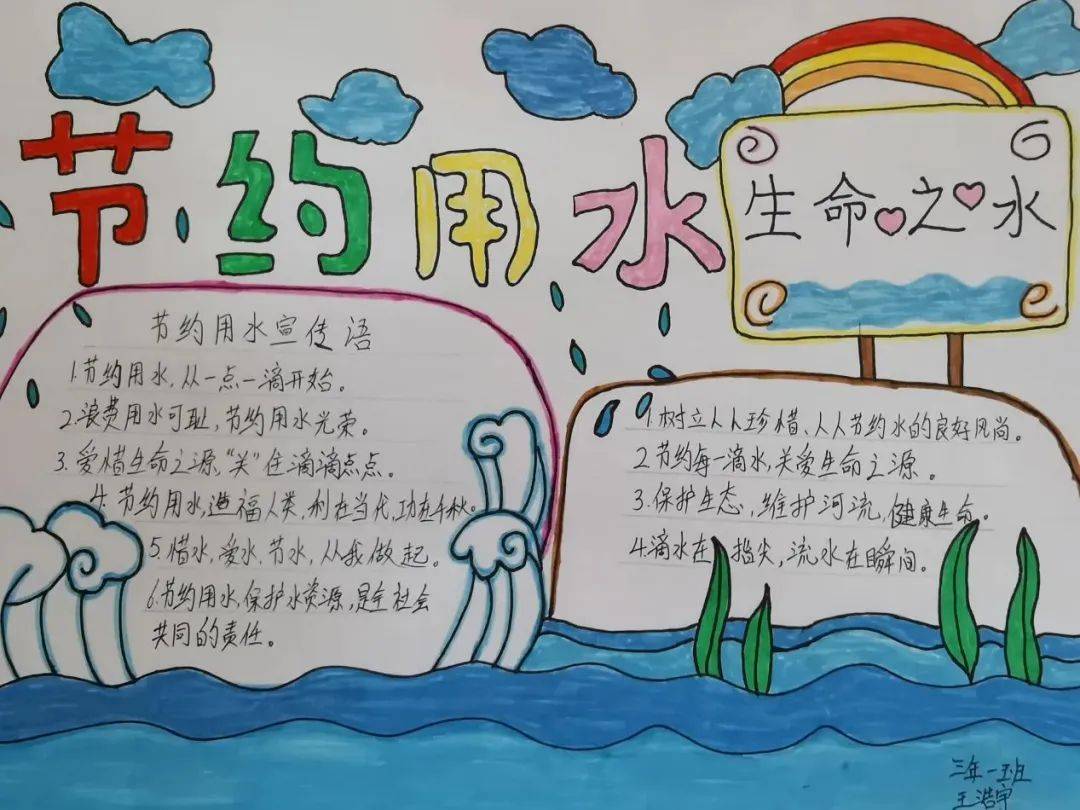 节约用水
生命之水
节约用水宣传语
1.节约用水,从一点一滴开始。
2.浪费用水可耻,节约用水光荣。
3.爱惜生命之源,"关"住滴滴点点。
4.节约用水,造福人类,利在当代,功在千秋。
5.惜水,爱水,节水,从我做起。
6.节约用水,保护水资源,是全社会
共同的责任。
1.树立人人珍惜、人人节约水的良好风尚。
2.节约每一滴水,关爱生命之源。
3.保护生态,维护河流,健康生命。
4.滴水在指尖,流水在瞬间。
三年一班
王浩宇